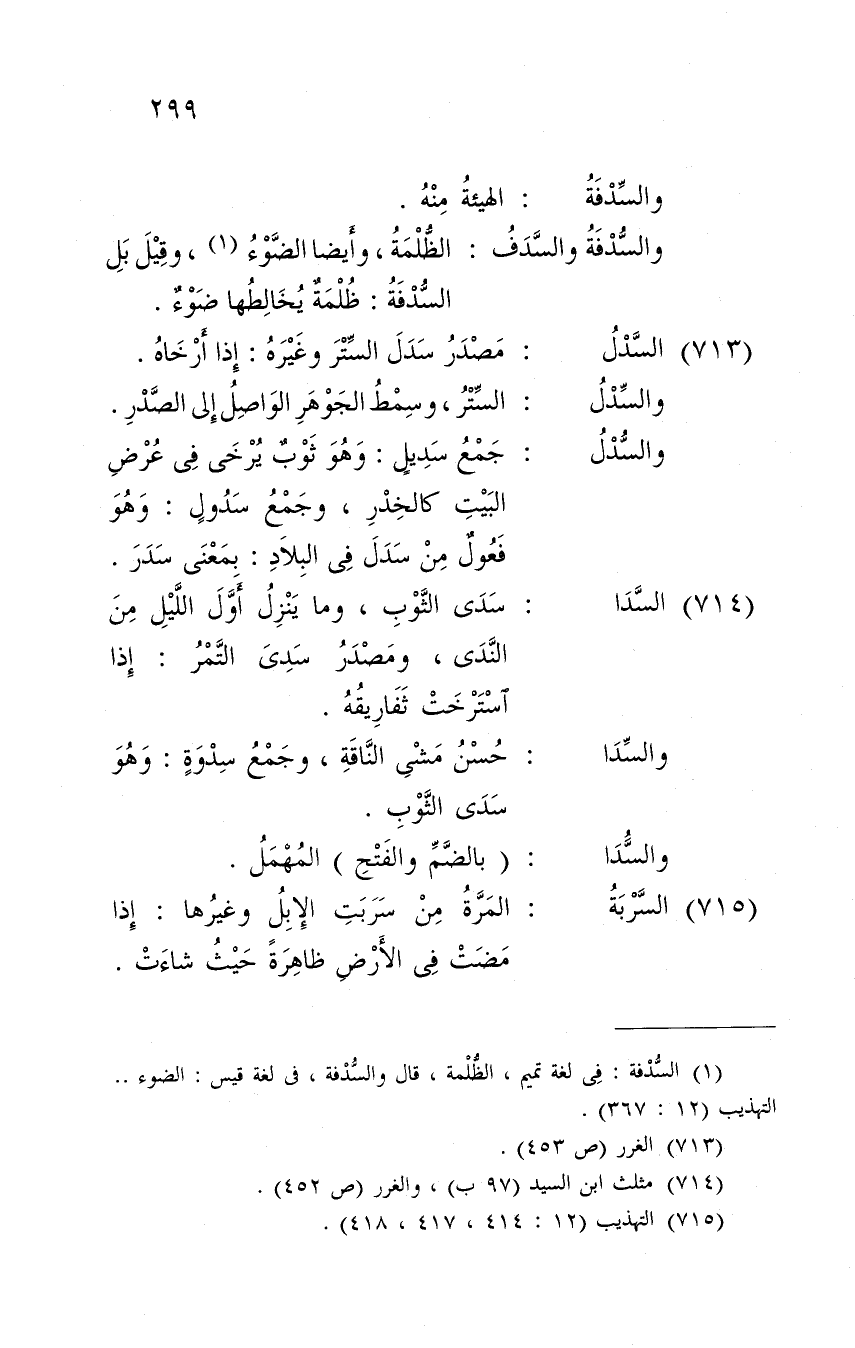 ٢٩٩
والسِّدْفَةُ : الهيئةُ مِنْهُ .
والسُّدْفَةُ والسَّدَفُ : الظُّلْمَةُ ، وأَيضا الضَّوْءُ (١) ، وقِيْلَ بَلِ
السُّدْفَةُ : ظُلْمَةٌ يُخَالِطُها ضَوْءٌ .
(٧١٣) السَّدْلُ : مَصْدَرُ سَدَلَ السِّتْرَ وغَيْرَهُ : إِذا أَرْخَاهُ .
والسِّدْلُ : السِّتْرُ ، وسِمْطُ الجَوْهَرِ الوَاصِلُ إِلى الصَّدْرِ .
والسُّدْلُ : جَمْعُ سَدِيلٍ : وَهُوَ ثَوْبٌ يُرْخَى فِى عُرْضِ
البَيْتِ كالخِدْرِ ، وجَمْعُ سَدُولٍ : وَهُوَ
فَعُولٌ مِنْ سَدَلَ فِى البِلاَدِ : بِمَعْنَى سَدَرَ .
(٧١٤) السَّدَا : سَدَى الثَّوْبِ ، وما يَنْزِلُ أَوَّلَ اللَّيْلِ مِنَ
النَّدَى ، ومَصْدَرُ سَدِىَ التَّمْرُ : إِذا
ٱسْتَرْخَتْ ثَفَارِيقُهُ .
والسِّدَا : حُسْنُ مَشْىِ النَّاقَةِ ، وجَمْعُ سِدْوَةٍ : وَهُوَ
سَدَى الثَّوْبِ .
والسَُّدَا : ( بالضَّمِّ والفَتْحِ ) المُهْمَلُ .
(٧١٥) السَّرْبَةُ : المَرَّةُ مِنْ سَرَبَتِ الإِبِلُ وغيرُها : إِذا
مَضَتْ فِى الأَرْضِ ظاهِرَةً حَيْثُ شاءَتْ .
(١) السُّدْفة : فِى لغة تميم ، الظُّلْمة ، قال والسُّدْفة ، فى لغة قيس : الضوء ..
التهذيب (١٢ : ٣٦٧) .
(٧١٣) الغرر (ص ٤٥٣) .
(٧١٤) مثلث ابن السيد (٩٧ ب) ، والغرر (ص ٤٥٢) .
(٧١٥) التهذيب (١٢ : ٤١٤ ، ٤١٧ ، ٤١٨) .